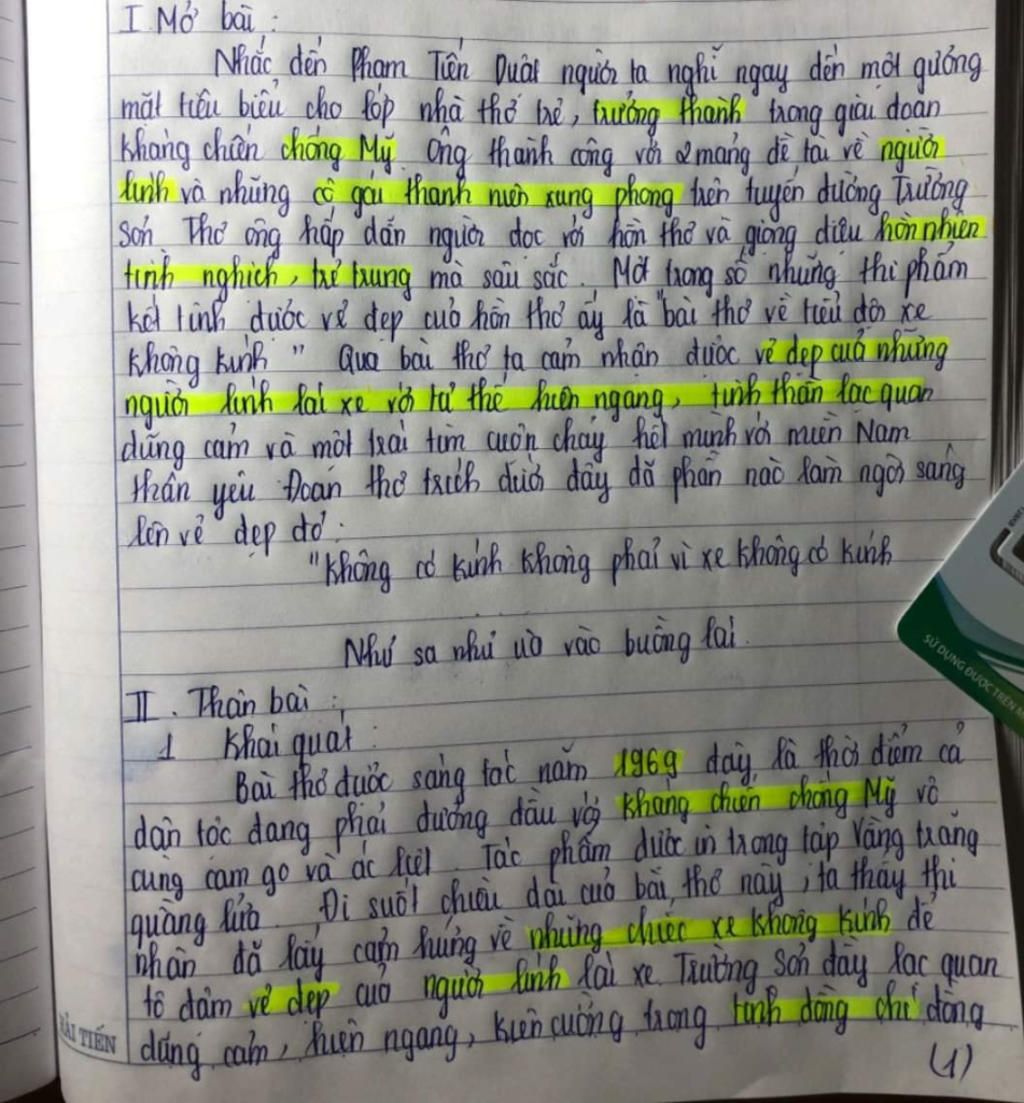 I. Mở bài :
Nhắc đến Phạm Tiến Duật người ta nghĩ ngay đến một gương
mặt tiêu biểu cho lớp nhà thơ trẻ, trưởng thành trong giai đoạn
kháng chiến chống Mỹ. Ông thành công với 2 mảng đề tài về người
lính và những cô gái thanh niên xung phong trên tuyến đường Trường
Sơn. Thơ ông hấp dẫn người đọc với hồn thơ và giọng điệu hồn nhiên
tinh nghịch, trẻ trung mà sâu sắc. Một trong số những thi phẩm
kết tinh được vẻ đẹp của hồn thơ ấy là "bài thơ về tiểu đội xe
không kính" Qua bài thơ ta cảm nhận được vẻ đẹp của những
người lính lái xe với tư thế hiên ngang, tinh thần lạc quan
dũng cảm và một trái tim cuộn chảy hết mình với miền Nam
thân yêu. Đoạn thơ trích dưới đây đã phần nào làm ngời sáng
lên vẻ đẹp đó :
"Không có kính không phải vì xe không có kính
Như sa như ùa vào buồng lái.
II. Thân bài :
1 Khái quát :
Bài thơ được sáng tác năm 1969 đây là thời điểm cả
dân tộc đang phải đương đầu với kháng chiến chống Mỹ vô
cùng cam go và ác liệt. Tác phẩm được in trong tập Vầng trăng
quầng lửa. Đi suốt chiều dài của bài thơ này, ta thấy thi
nhân đã lấy cảm hứng về những chiếc xe không kính để
tô đậm vẻ đẹp của người lính lái xe Trường Sơn đầy lạc quan
dũng cảm, hiên ngang, kiên cường trong tình đồng chí đồng
(1)
HẢI TIẾN
SỬ DỤNG ĐƯỢC TRÊN